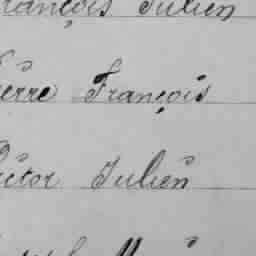 rançois Julien
ierre François
ictor Julien